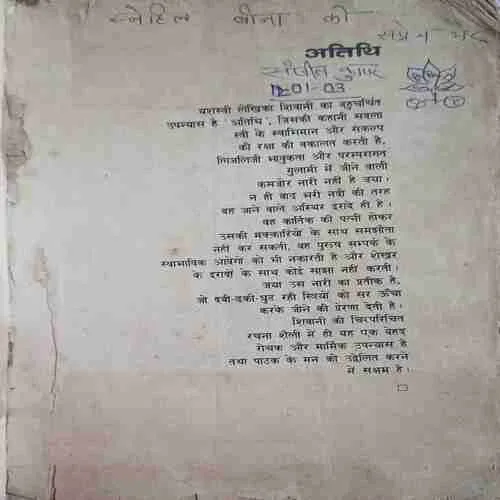 स्नेहिल बीना को
सप्रेम भेंट
अतिथि
संजीव कुमार
12-01-03
यशस्वी लेखिका शिवानी का बहुचर्चित
उपन्यास है 'अतिथि', जिसकी कहानी सबला
स्त्री के स्वाभिमान और संकल्प
की रक्षा की वकालत करती है,
लिजलिजी भावुकता और परम्परागत
गुलामी में जीने वाली
कमजोर नारी नहीं है जया।
न ही बाढ़ भरी नदी की तरह
बह जाने वाले अस्थिर इरादे ही है।
वह कार्तिक की पत्नी होकर
उसकी मक्कारियों के साथ समझौता
नहीं कर सकती, वह पुरुष सम्पर्क के
स्वाभाविक आवेगों को भी नकारती है और शेखर
के इरादों के साथ कोई साझा नहीं करती।
जया उस नारी का प्रतीक है,
जो दबी-ढकी-घुट रही स्त्रियों को सर ऊँचा
करके जीने की प्रेरणा देती है।
शिवानी की चिरपरिचित
रचना शैली में ही यह एक बेहद
रोचक और मार्मिक उपन्यास है
तथा पाठक के मन को उद्वेलित करने
में सक्षम है।